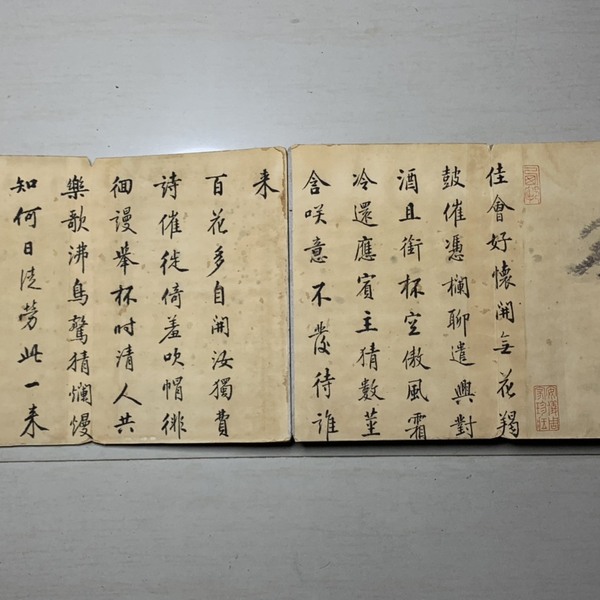 佳會好懷開無花羯
鼓催憑欄聊遣興對
酒且銜杯空傲風霜
冷還應賓主猜數莖
含咲意不發待誰
来
百花多自開汝獨費
詩催徙倚羞吹帽徘
徊謾舉杯时清人共
樂歌沸鳥驚猜爛熳
知何日徒劳此一来